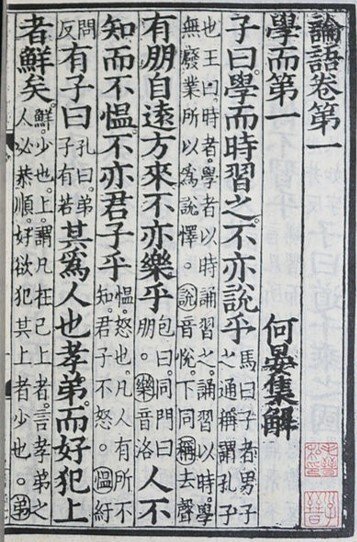 論語卷第一
學而第一 何晏集解
子曰學而時習之不亦說乎 馬曰子者男子之通稱謂孔子
也王曰時者學者以時誦習之誦習以時學無廢業所以爲說懌說音悅下同稱去聲
有朋自遠方來不亦樂乎 包曰同門曰朋樂音洛 人不
知而不慍不亦君子乎 慍怒也凡人有所不知君子不怒慍紆
問反 有子曰 孔曰弟子有若 其爲人也孝弟而好犯上
者鮮矣 鮮少也上謂凡在己上者言孝弟之人必恭順好欲犯其上者少也弟